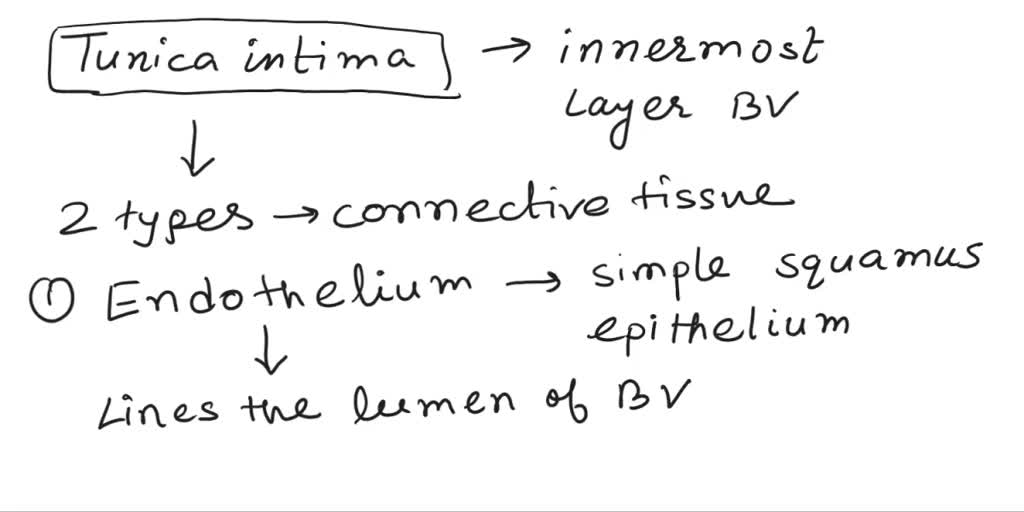 Tunica intima → innermost
Layer BV
↓
2 types → connective tissue
① Endothelium → simple squamus
epithelium
↓
Lines the lumen of BV